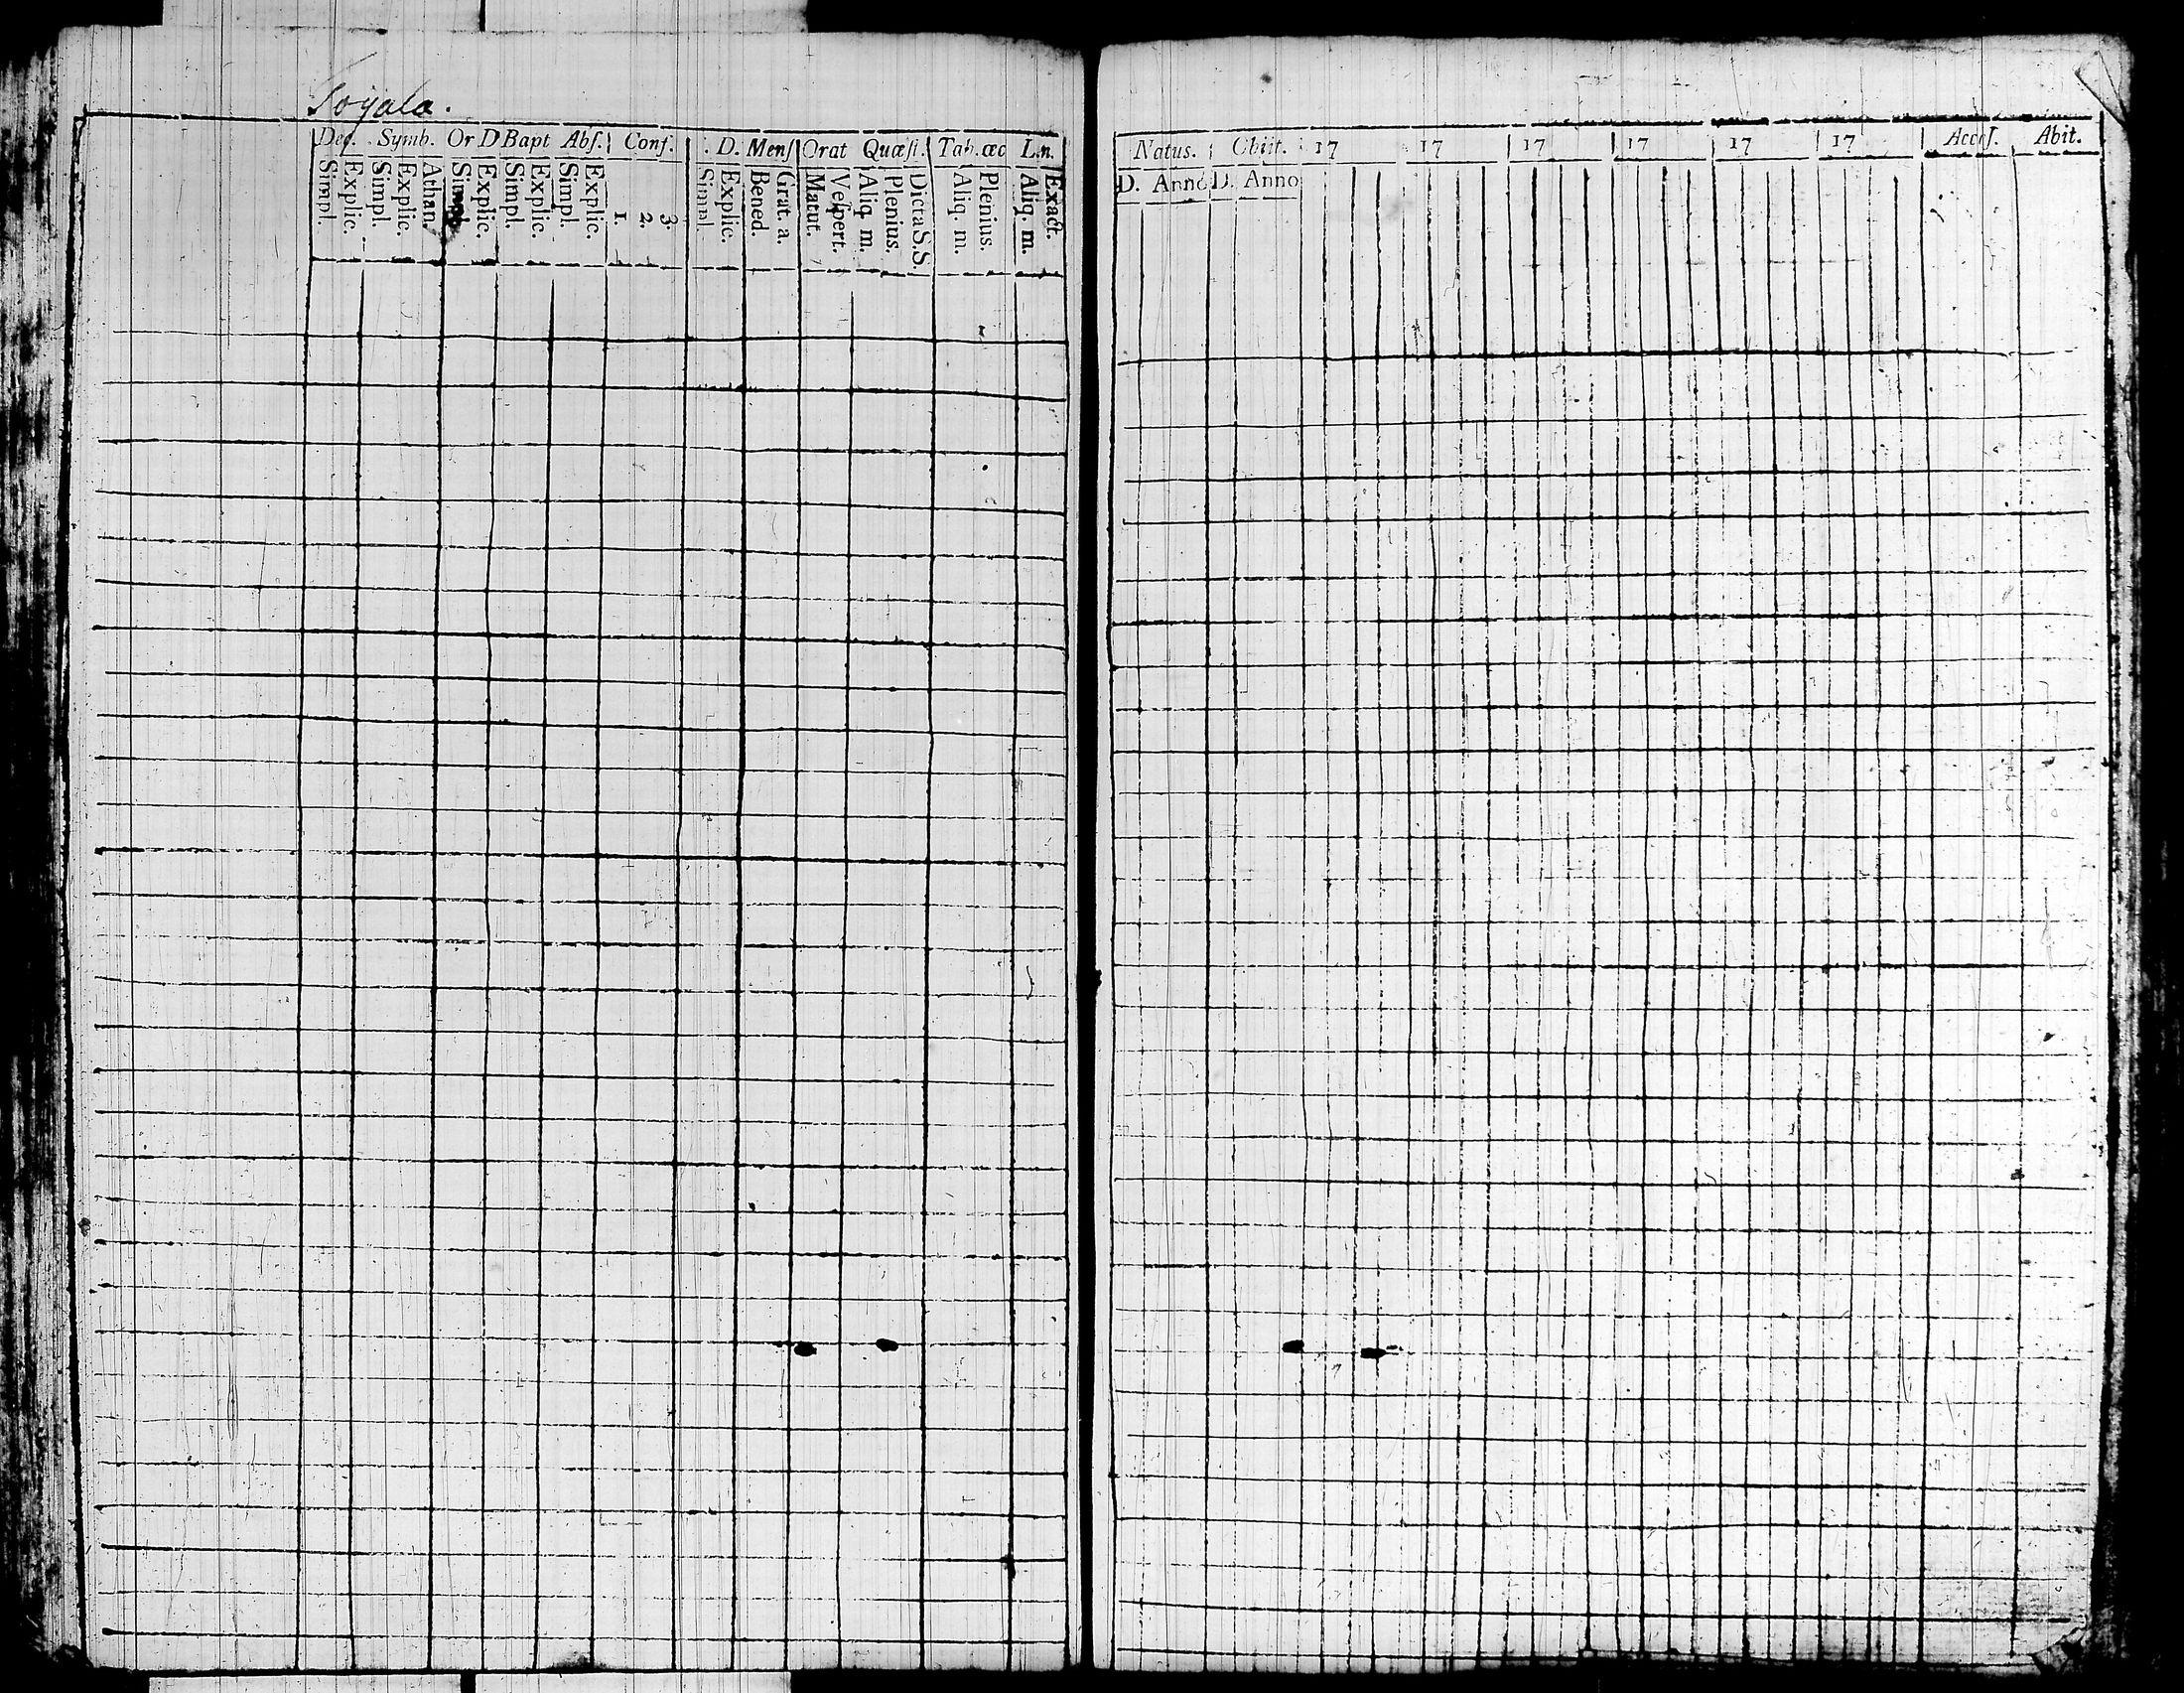 Toyala.
Dec. Symb. Or D Bapt Abſ. Conf. D. Menſ Orat Quæſt. Tab. œc L.n.
Simpl. Explic. Simpl. Explic. Athan. Simpl. Explic. Simpl. Explic. Simpl. Explic. 1. 2. 3. Simpl. Explic. Bened. Grat. a. Matut. Veſpert. Aliq. m. Plenius. Dicta S.S. Aliq. m. Plenius. Aliq. m. Exact.
Natus. Obiit. 17 17 17 17 17 17 Acceſ. Abit.
D. Anno D. Anno